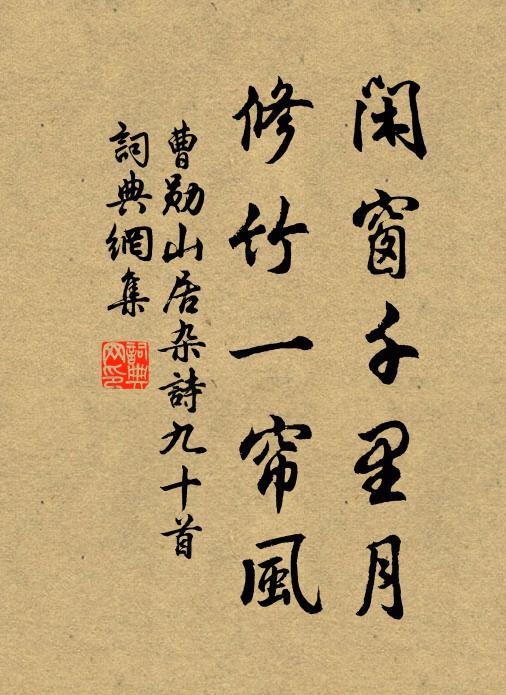 閑窗千里月
修竹一帘風
曹勛山居杂詩九十首
詞典網集
詞典
网印